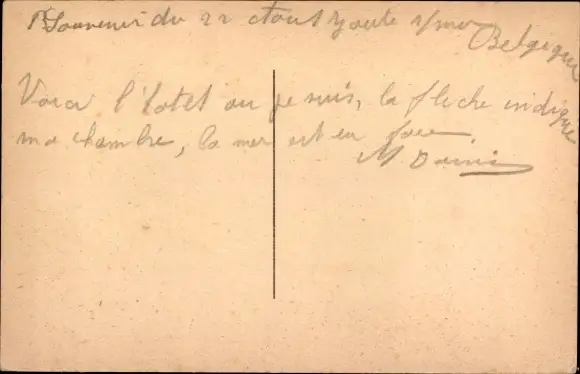 Souvenir du 22 Aout Zoute s/mer
Belgique
Voici l'hotel ou je suis, la fleche indique
ma chambre, la mer est en face
M. Denis